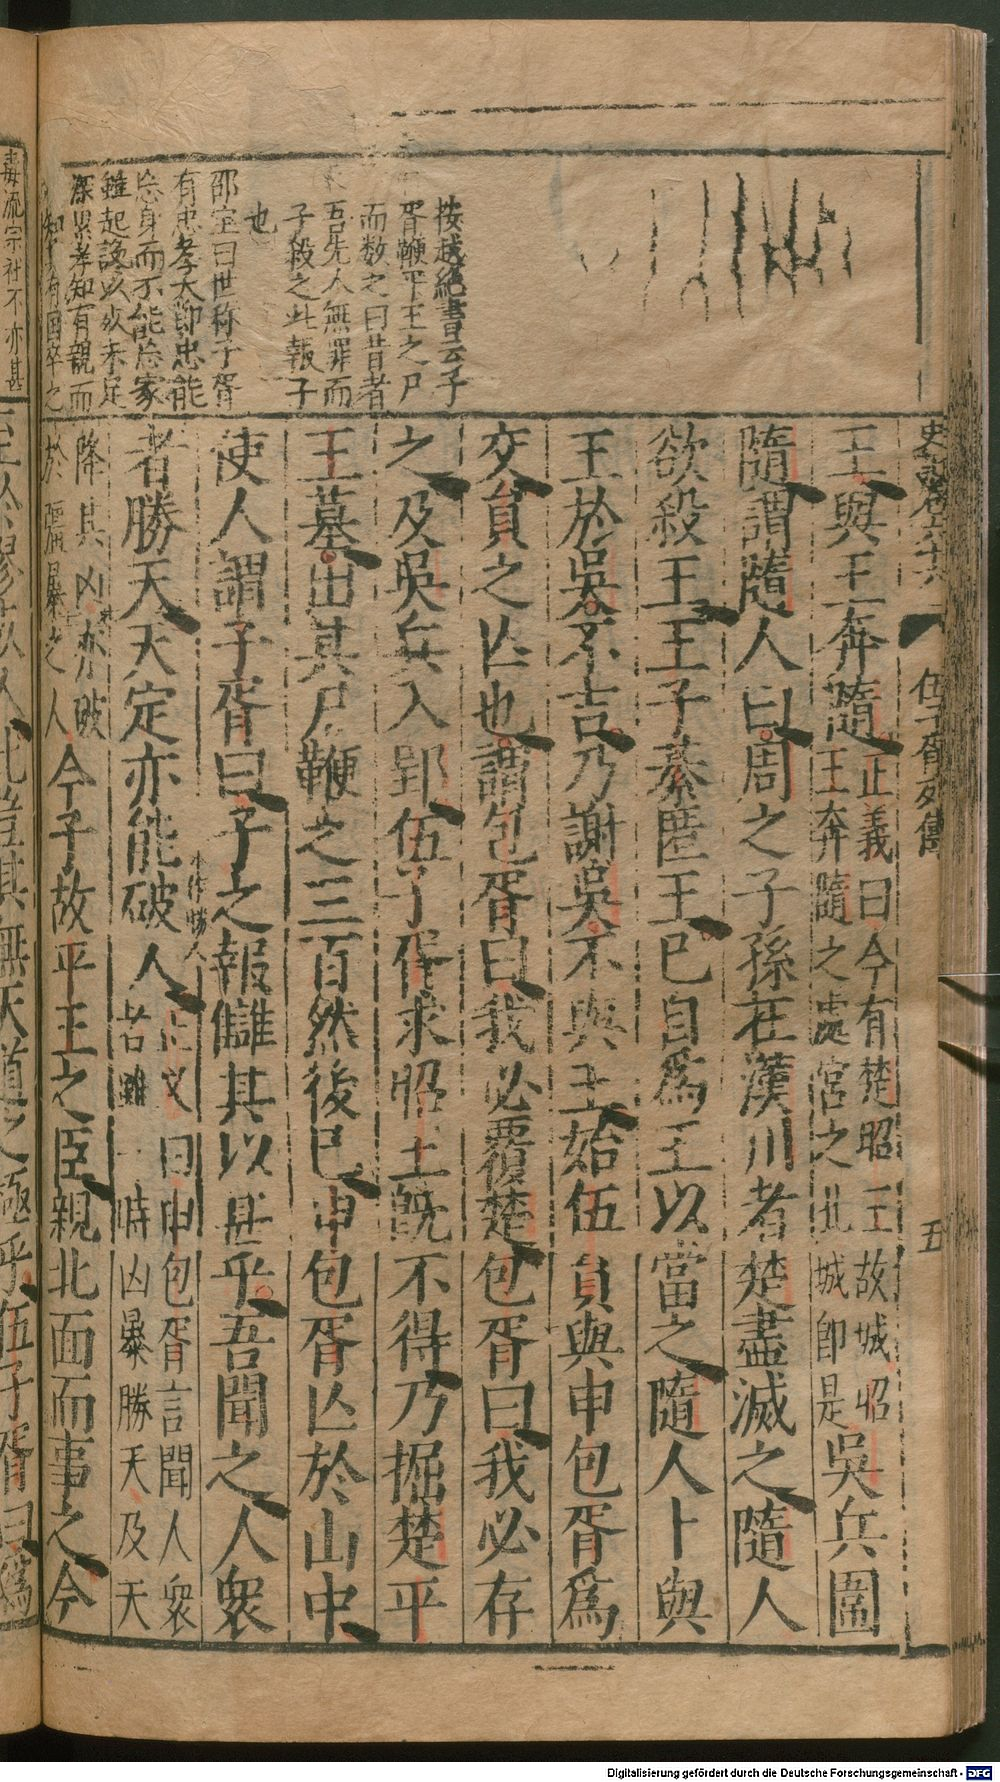 史記卷六十六
伍子胥列傳
五
王與王奔隨正義曰今有楚昭王故城昭王奔隨之處宮之北城即是吳兵圍
隨謂隨人曰周之子孫在漢川者楚盡滅之隨人
欲殺王王子綦匿王已自為王以當之隨人卜與
王於吳不吉乃謝吳不與王始伍員與申包胥為
交員之亡也謂包胥曰我必覆楚包胥曰我必存
之及吳兵入郢伍子胥求昭王既不得乃掘楚平
王墓出其尸鞭之三百然後已申包胥亡於山中
使人謂子胥曰子之報讎其以甚乎吾聞之人衆
者勝天天定亦能破人正义曰申包胥言聞人衆者雖一時凶暴勝天及天
降其凶亦破於彊暴之人今子故平王之臣親北面而事之今
按越絕書云子
胥鞭平王之尸
而数之曰昔者
吾先人無罪而
子殺之此報子
也
邵宝曰世称子胥
有忠孝大節忠能
忘身而不能忘家
雖起讒以
深累孝知有親而
知有国卒之
毒流宗社不亦甚
此豈其無天道之極乎伍子胥曰為
Digitalisierung gefördert durch die Deutsche Forschungsgemeinschaft - DFG